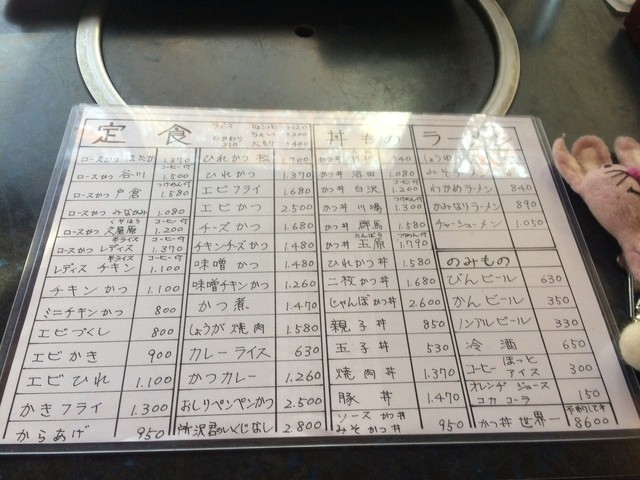 定食
ライス
おかわり 210
ちょい 200
大もり 400
ロースかつ 1.370
コーヒー付
ロースかつ 谷川 1.500
うけめん付
ロースかつ 戸倉 1.580
ロースかつ みなかみ 1.080
コーヒー付
ロースかつ 1.200
半ライス コーヒー付
ロースかつ レディス 1.370
半ライス コーヒー付
レディス チキン 1.100
チキン かつ 1.100
ミニチキン かつ 800
エビづくし 800
エビかき 900
エビひれ 1.100
かきフライ 1.300
からあげ 950
ひれかつ 松 1.700
ひれかつ 1.370
エビフライ 1.680
エビかつ 2.500
チーズかつ 1.680
チキンチーズかつ 1.480
味噌かつ 1.480
味噌チキンかつ 1.260
かつ煮 1.470
しょうが焼肉 1.580
カレーライス 630
かつカレー 1.260
おしりペンペンかつ 2.500
所沢君のいくじなし 2.800
丼もの
かつ丼
かつ丼 沼田 1.080
コーヒー付
かつ丼 白沢 1.200
かつ丼 川場 1.300
かつ丼 群馬 1.580
かつ丼 玉原 1.790
ひれかつ丼 1.580
二枚かつ丼 1.680
じゃんぼかつ丼 2.600
親子丼 850
玉子丼 530
焼肉丼 1.370
豚丼 1.470
ソース かつ丼
みそ かつ丼 950
ラーメン
わかめラーメン 840
かみなりラーメン 890
チャーシューメン 1.050
のみもの
びんビール 630
かんビール 350
ノンアルビール 330
冷酒 650
コーヒー ほっと アイス 300
オレンヂ ジュース
コカ コーラ 150
かつ丼 世界一 8600